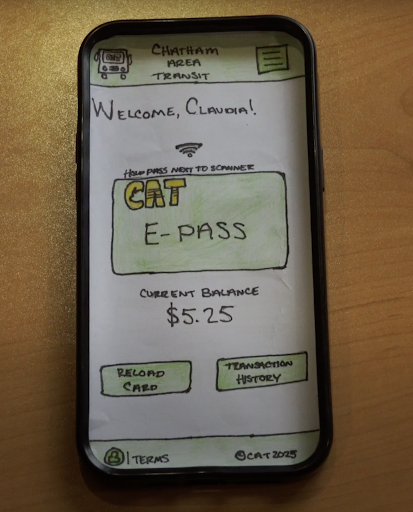 CHATHAM
AREA
TRANSIT
WELCOME, CLAUDIA!
HOLD PASS NEXT TO SCANNER
CAT
E-PASS
CURRENT BALANCE
$5.25
RELOAD
CARD
TRANSACTION
HISTORY
| TERMS
©CAT 2025